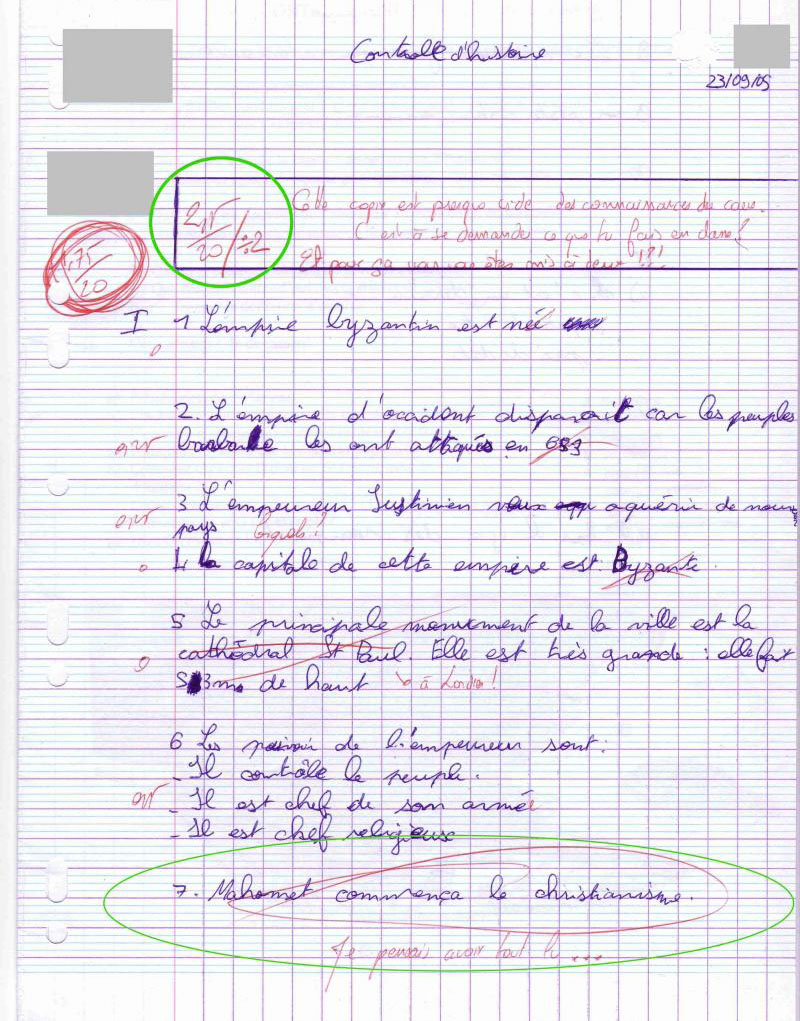 Controlle d'histoire
23/09/05
2,5/20 /÷2
Cette copie est presque vide des connaissances du cours.
C'est à se demander ce que tu fais en classe !
Et pour ça vous vous êtes mis à deux !?!
1,75/20
I 1 L'émpire byzantin est née
0
2. L'émpire d'occident disparait car les peuples
0,25 barbare les ont attiqués en 683
3 L'empeureur Justinien veux aquérir de nouv
0,25 pays lesquels ?
0 4 La capitale de cette empire est Byzante.
5 Le principale monument de la ville est la
cathédral St Paul. Elle est très grande : elle fait
0 53m de haut à Londres !
6 Les pouvoir de l'empeureur sont :
- Il contrôle le peuple.
- Il est chef de son armée
- Il est chef religieuse
7. Mahomet commença le christianisme.
Je pensais avoir tout lu ...